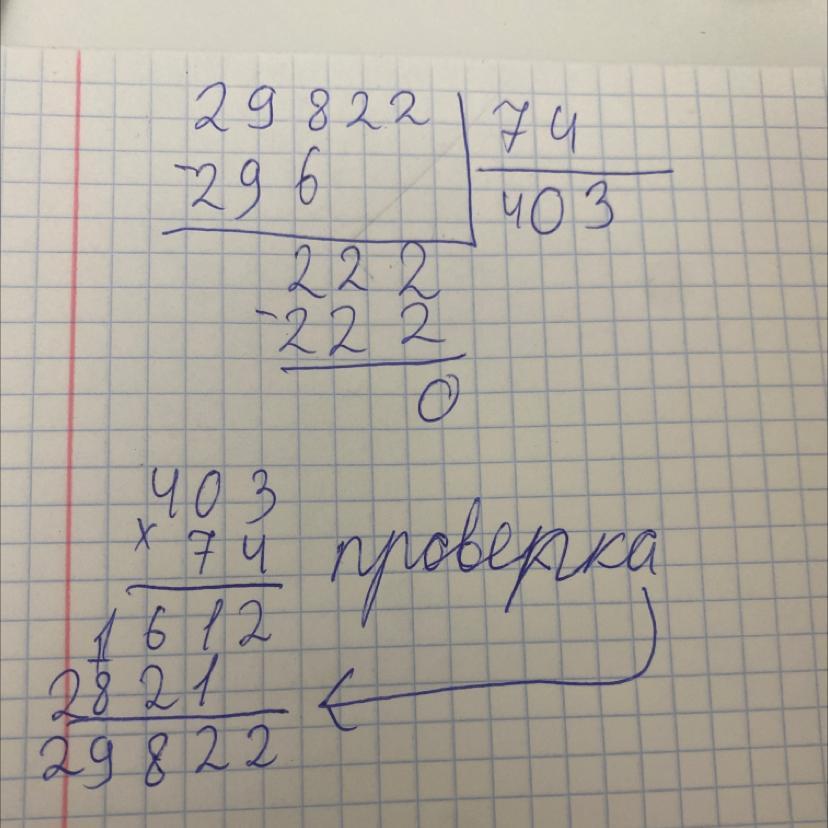 29822 74
-296 403
222
-222
0
403
х 74 проверка
1612
2821
29822